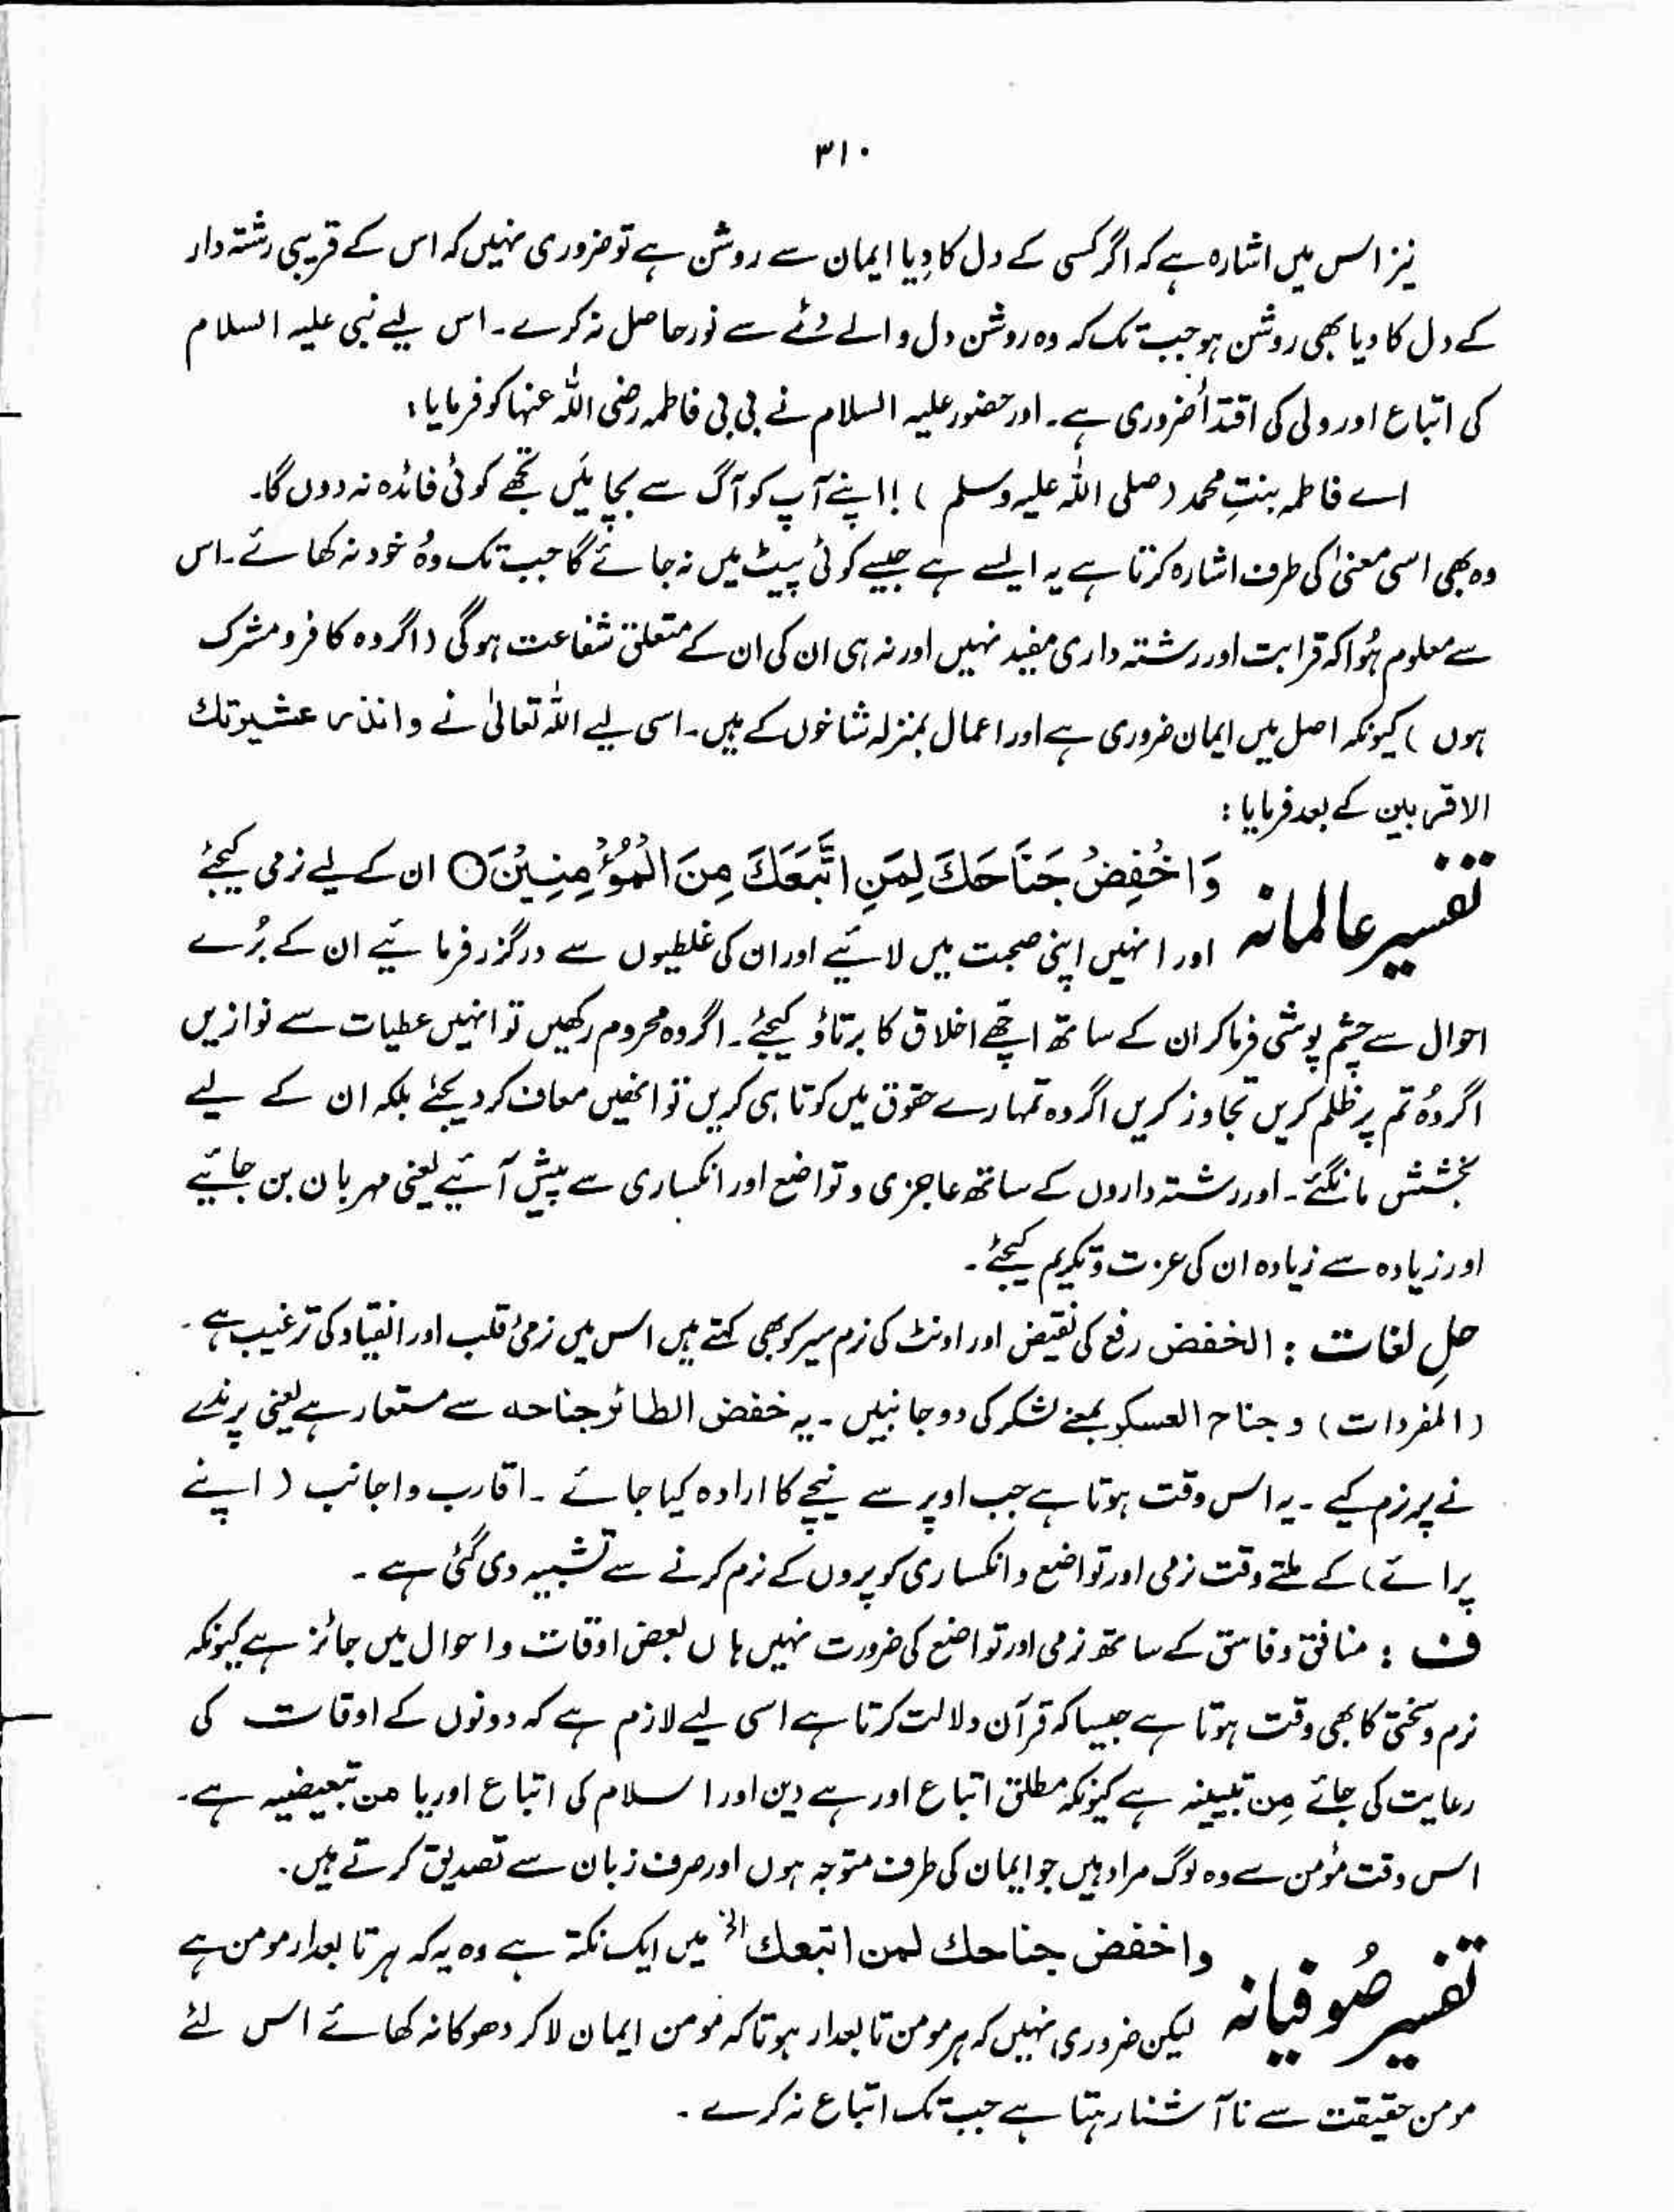 ۳۱۰
نیز اس میں اشارہ ہے کہ اگر کسی کے دل کا دِیا ایمان سے روشن ہے تو ضروری نہیں کہ اس کے قریبی رشتہ دار
کے دل کا دیا بھی روشن ہو جب تک کہ وہ روشن دل والے دئے سے نور حاصل نہ کرے۔ اس لیے نبی علیہ السلام
کی اتباع اور ولی کی اقتدأ ضروری ہے۔ اور حضور علیہ السلام نے بی بی فاطمہ رضی اللہ عنہا کو فرمایا:
اے فاطمہ بنتِ محمد (صلی اللہ علیہ وسلم)! اپنے آپ کو آگ سے بچا میَں تجھے کوئی فائدہ نہ دوں گا۔
وہ بھی اسی معنیٰ کی طرف اشارہ کرتا ہے یہ ایسے ہے جیسے کوئی پیٹ میں نہ جائے گا جب تک وہُ خود نہ کھائے۔ اس
سے معلوم ہُوا کہ قرابت اور رشتہ داری مفید نہیں اور نہ ہی ان کی ان کے متعلق شفاعت ہوگی (اگر وہ کافر و مشرک
ہوں) کیونکہ اصل میں ایمان ضروری ہے اور اعمال بمنزلہ شاخوں کے ہیں۔ اسی لیے اللہ تعالیٰ نے وانذر عشیرتك
الاقربین کے بعد فرمایا:
تفسیر عالمانہ وَاخْفِضْ جَنَاحَكَ لِمَنِ اتَّبَعَكَ مِنَ الْمُؤْمِنِيْنَ۝ ان کے لیے نرمی کیجئے
اور انہیں اپنی صحبت میں لائیے اور ان کی غلطیوں سے درگزر فرمائیے ان کے بُرے
احوال سے چشم پوشی فرما کر ان کے ساتھ اچھے اخلاق کا برتاؤ کیجئے۔ اگر وہ محروم رکھیں تو انہیں عطیات سے نوازیں
اگر وہُ تم پر ظلم کریں تجاوز کریں اگر وہ تمہارے حقوق میں کوتاہی کریں تو انھیں معاف کر دیجئے بلکہ ان کے لیے
بخشش مانگئے۔ اور رشتہ داروں کے ساتھ عاجزی و تواضع اور انکساری سے پیش آئیے یعنی مہربان بن جائیے
اور زیادہ سے زیادہ ان کی عزت و تکریم کیجئے۔
حلِ لغات: الخفض رفع کی نقیض اور اونٹ کی نرم سیر کو بھی کہتے ہیں اس میں نرمیٔ قلب اور انقیاد کی ترغیب ہے۔
(المفردات) و جناح العسکر بمعنے لشکر کی دو جانبیں۔ یہ خفض الطائر جناحہ سے مستعار ہے یعنی پرندے
نے پر نرم کیے۔ یہ اس وقت ہوتا ہے جب اوپر سے نیچے کا ارادہ کیا جائے۔ اقارب و اجانب (اپنے
پرائے) کے ملتے وقت نرمی اور تواضع و انکساری کو پروں کے نرم کرنے سے تشبیہ دی گئی ہے۔
ف: منافق و فاسق کے ساتھ نرمی اور تواضع کی ضرورت نہیں ہاں بعض اوقات و احوال میں جائز ہے کیونکہ
نرم و سختی کا بھی وقت ہوتا ہے جیسا کہ قرآن دلالت کرتا ہے اسی لیے لازم ہے کہ دونوں کے اوقات کی
رعایت کی جائے مِن تبیینہ ہے کیونکہ مطلق اتباع اور ہے دین اور اسلام کی اتباع اور یا من تبعیضیہ ہے۔
اس وقت مؤمن سے وہ لوگ مراد ہیں جو ایمان کی طرف متوجہ ہوں اور صرف زبان سے تصدیق کرتے ہیں۔
تفسیر صُوفیانہ واخفض جناحك لمن اتبعك الخ میں ایک نکتہ ہے وہ یہ کہ ہر تابعدار مومن ہے
لیکن ضروری نہیں کہ ہر مومن تابعدار ہو تا کہ مومن ایمان لا کر دھوکا نہ کھائے اس لئے
مومن حقیقت سے ناآشنا رہتا ہے جب تک اتباع نہ کرے۔